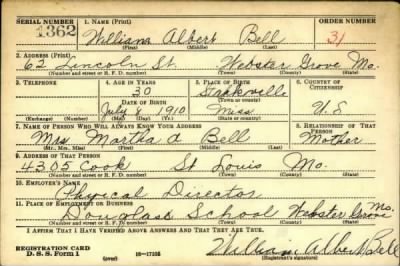 SERIAL NUMBER 1. NAME (Print) ORDER NUMBER
1362 William Albert Bell 31
(First) (Middle) (Last)
2. ADDRESS (Print)
62 Lincoln St. Webster Grove Mo.
(Number and street or R. F. D. number) (Town) (County) (State)
3. TELEPHONE 4. AGE IN YEARS 5. PLACE OF BIRTH 6. COUNTRY OF CITIZENSHIP
30 Starkville
DATE OF BIRTH (Town or county)
July 1 1910 Miss. U S
(Exchange) (Number) (Mo.) (Day) (Yr.) (State or country)
7. NAME OF PERSON WHO WILL ALWAYS KNOW YOUR ADDRESS 8. RELATIONSHIP OF THAT PERSON
Mrs Martha A Bell Mother
(Mr., Mrs., Miss) (First) (Middle) (Last)
9. ADDRESS OF THAT PERSON
4305 Cook St Louis Mo.
(Number and street or R. F. D. number) (Town) (County) (State)
10. EMPLOYER'S NAME
Physical Director
11. PLACE OF EMPLOYMENT OR BUSINESS
Douglass School Webster Grove Mo.
(Number and street or R. F. D. number) (Town) (County) (State)
I AFFIRM THAT I HAVE VERIFIED ABOVE ANSWERS AND THAT THEY ARE TRUE.
REGISTRATION CARD
D. S. S. Form 1 (over) 16—17105 William Albert Bell